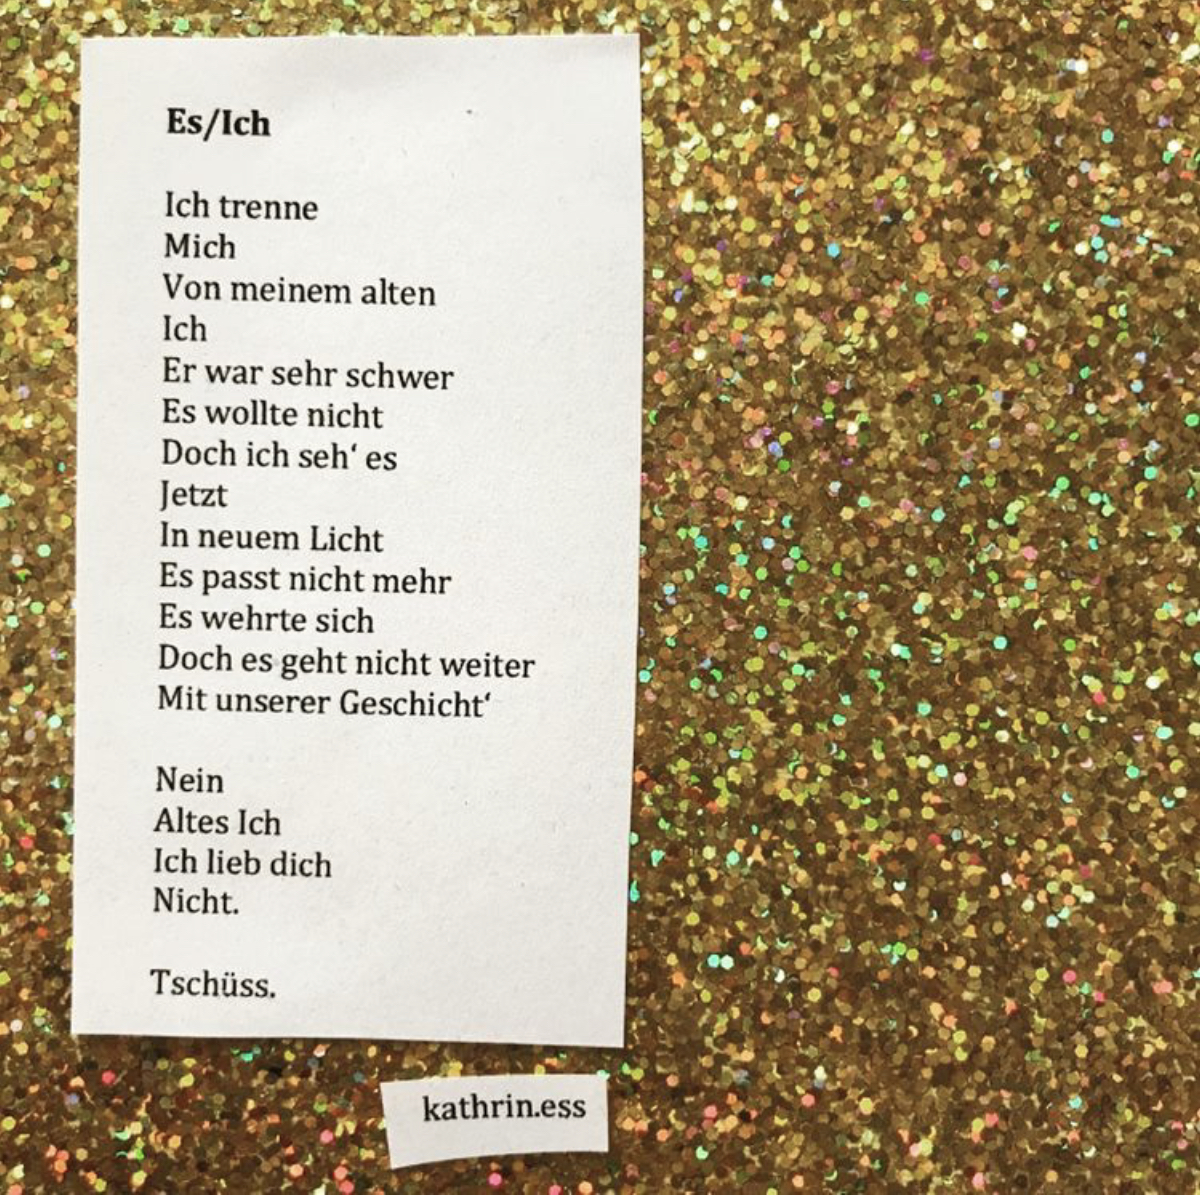 Es/Ich
Ich trenne
Mich
Von meinem alten
Ich
Er war sehr schwer
Es wollte nicht
Doch ich seh‘ es
Jetzt
In neuem Licht
Es passt nicht mehr
Es wehrte sich
Doch es geht nicht weiter
Mit unserer Geschicht‘
Nein
Altes Ich
Ich lieb dich
Nicht.
Tschüss.
kathrin.ess